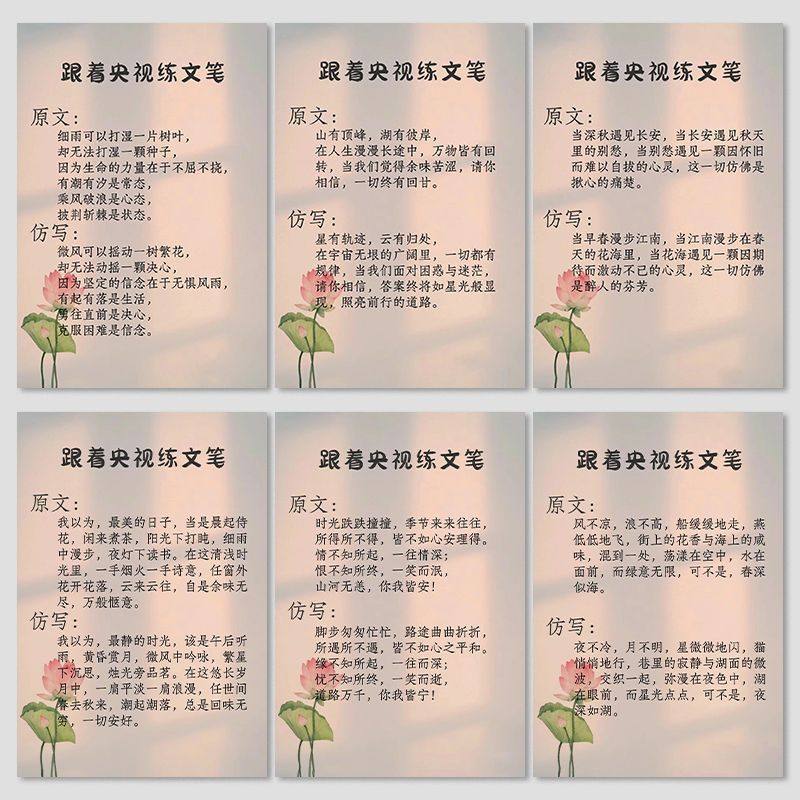 跟着央视练文笔
原文：
细雨可以打湿一片树叶，
却无法打湿一颗种子，
因为生命的力量在于不屈不挠，
有潮有汐是常态，
乘风破浪是心态，
披荆斩棘是状态。
仿写：
微风可以摇动一树繁花，
却无法动摇一颗决心，
因为坚定的信念在于无惧风雨，
有起有落是生活，
勇往直前是决心，
克服困难是信念。
跟着央视练文笔
原文：
山有顶峰，湖有彼岸，
在人生漫漫长途中，万物皆有回
转，当我们觉得余味苦涩，请你
相信，一切终有回甘。
仿写：
星有轨迹，云有归处，
在宇宙无垠的广阔里，一切都有
规律，当我们面对困惑与迷茫，
请你相信，答案终将如星光般显
现，照亮前行的道路。
跟着央视练文笔
原文：
当深秋遇见长安，当长安遇见秋天
里的别愁，当别愁遇见一颗因怀旧
而难以自拔的心灵，这一切仿佛是
揪心的痛楚。
仿写：
当早春漫步江南，当江南漫步在春
天的花海里，当花海遇见一颗因期
待而激动不已的心灵，这一切仿佛
是醉人的芬芳。
跟着央视练文笔
原文：
我以为，最美的日子，当是晨起侍
花，闲来煮茶，阳光下打盹，细雨
中漫步，夜灯下读书。在这清浅时
光里，一手烟火一手诗意，任窗外
花开花落，云来云往，自是余味无
尽，万般惬意。
仿写：
我以为，最静的时光，该是午后听
雨，黄昏赏月，微风中吟咏，繁星
下沉思，烛光旁品茗。在这悠长岁
月中，一肩平淡一肩浪漫，任世间
春去秋来，潮起潮落，总是回味无
穷，一切安好。
跟着央视练文笔
原文：
时光跌跌撞撞，季节来来往往，
所得所不得，皆不如心安理得。
情不知所起，一往情深；
恨不知所终，一笑而泯，
山河无恙，你我皆安！
仿写：
脚步匆匆忙忙，路途曲曲折折，
所遇所不遇，皆不如心之平和。
缘不知所起，一往而深；
忧不知所终，一笑而逝，
道路万千，你我皆宁！
跟着央视练文笔
原文：
风不凉，浪不高，船缓缓地走，燕
低低地飞，街上的花香与海上的咸
味，混到一处，荡漾在空中，水在
面前，而绿意无限，可不是，春深
似海。
仿写：
夜不冷，月不明，星微微地闪，猫
悄悄地行，巷里的寂静与湖面的微
波，交织一起，弥漫在夜色中，湖
在眼前，而星光点点，可不是，夜
深如湖。